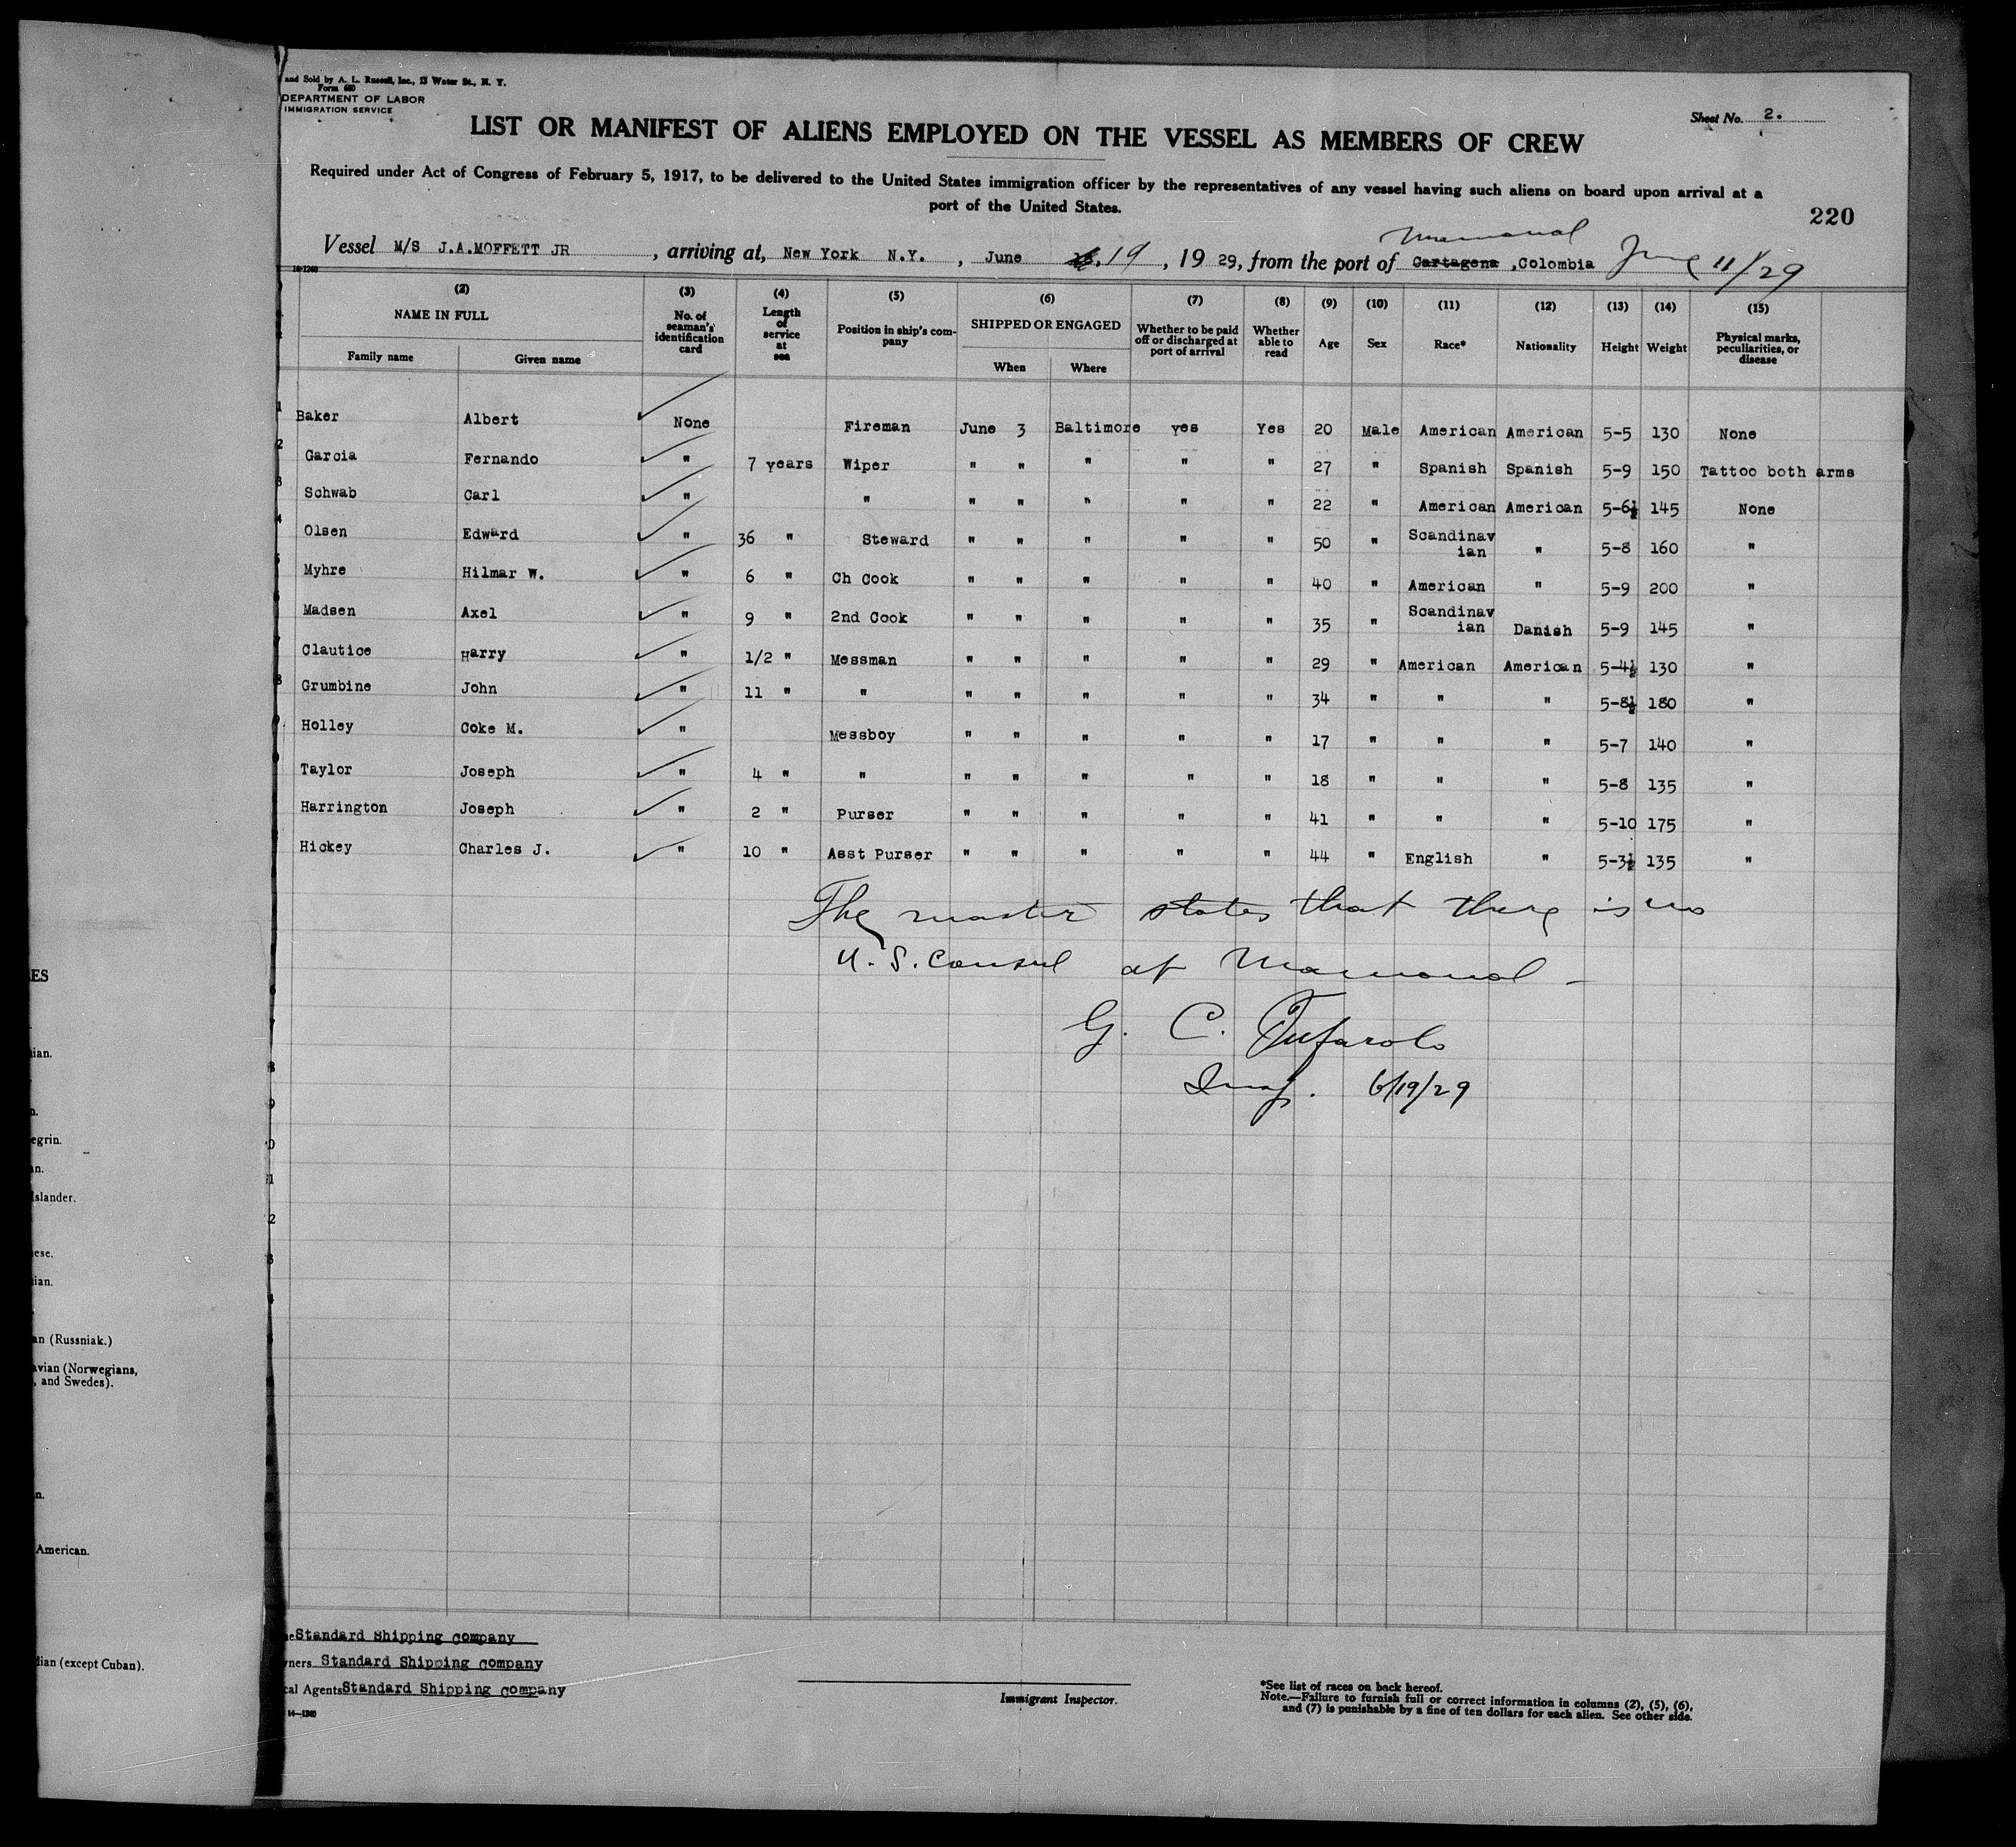 and Sold by A. L. Russell, Inc., 13 Water St., N. Y.
Form 680
DEPARTMENT OF LABOR
IMMIGRATION SERVICE
Sheet No. 2.
LIST OR MANIFEST OF ALIENS EMPLOYED ON THE VESSEL AS MEMBERS OF CREW
Required under Act of Congress of February 5, 1917, to be delivered to the United States immigration officer by the representatives of any vessel having such aliens on board upon arrival at a
port of the United States.
220
Mamonal
Vessel M/S J.A.MOFFETT JR , arriving at, New York N.Y. , June 19 , 19 29, from the port of Cartagena ,Colombia June 11/29
(2) (3) (4) (5) (6) (7) (8) (9) (10) (11) (12) (13) (14) (15)
NAME IN FULL Family name Given name No. of seaman's identification card Length of service at sea Position in ship's company SHIPPED OR ENGAGED When Where Whether to be paid off or discharged at port of arrival Whether able to read Age Sex Race* Nationality Height Weight Physical marks, peculiarities, or disease
1 Baker Albert None Fireman June 3 Baltimore yes Yes 20 Male American American 5-5 130 None
2 Garcia Fernando " 7 years Wiper " " " " " 27 " Spanish Spanish 5-9 150 Tattoo both arms
3 Schwab Carl " " " " " " " 22 " American American 5-6½ 145 None
4 Olsen Edward " 36 " Steward " " " " " 50 " Scandinavian " 5-8 160 "
5 Myhre Hilmar W. " 6 " Ch Cook " " " " " 40 " American " 5-9 200 "
6 Madsen Axel " 9 " 2nd Cook " " " " " 35 " Scandinavian Danish 5-9 145 "
7 Clautice Harry " 1/2 " Messman " " " " " 29 " American American 5-4½ 130 "
8 Grumbine John " 11 " " " " " " " 34 " " " 5-8½ 180 "
Holley Coke M. " Messboy " " " " " 17 " " " 5-7 140 "
Taylor Joseph " 4 " " " " " " " 18 " " " 5-8 135 "
Harrington Joseph " 2 " Purser " " " " " 41 " " " 5-10 175 "
Hickey Charles J. " 10 " Asst Purser " " " " " 44 " English " 5-3½ 135 "
The master states that there is no
U. S. Consul at Mamonal -
G. C. Tufarolo
Insp. 6/19/29
Standard Shipping company
Owners Standard Shipping company
Local Agents Standard Shipping company
14-1240
Immigrant Inspector.
*See list of races on back hereof.
Note.—Failure to furnish full or correct information in columns (2), (5), (6),
and (7) is punishable by a fine of ten dollars for each alien. See other side.
egrin.
Islander.
an (Russniak.)
avian (Norwegians,
, and Swedes).
American.
dian (except Cuban).